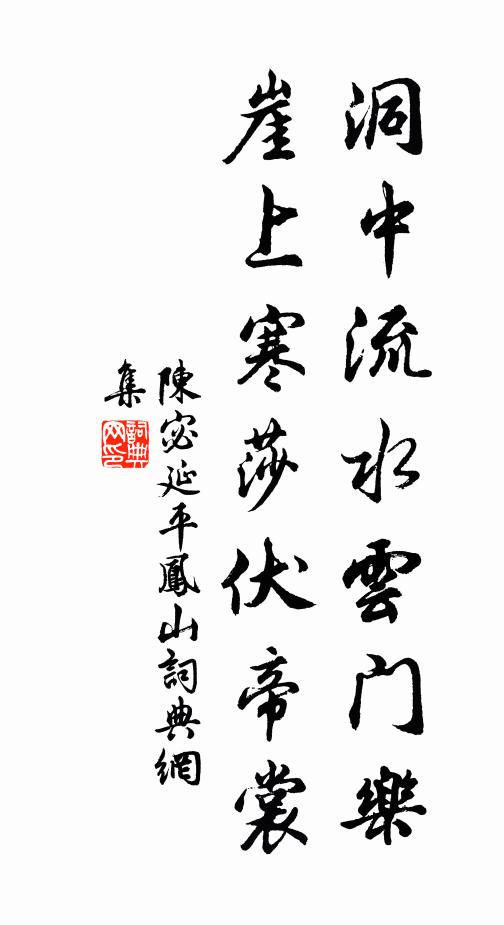 洞中流水雲门樂
崖上寒莎伏帝裳
陳宓延平鳳山詞典網
集
詞典
网印